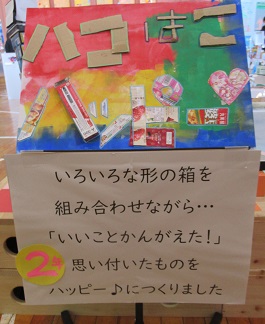 ハコはこ
いろいろな形の箱を
組み合わせながら…
「いいことかんがえた!」
2年 思い付いたものを
ハッピー♪につくりました